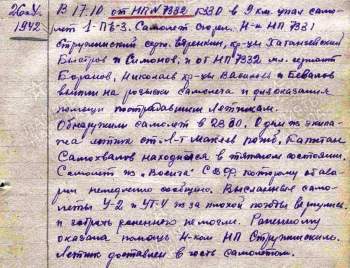 26.V.
1942
В 17.10 от НП № 7332 ББО в 9 км. упал само-
лет 1-Пъ-3. Самолет сгорел. Н-к НП 7331
Стружинский серж. Веренкин, кр-цы
Быстров и Симонов, и от НП 7332 мл. сержант
Баранов, Николаев кр-цы Васильев и
вышли на розыски самолета и для оказания
помощи пострадавшим летчикам.
Обнаружили самолет в 23.00. Один из экипа-
жа летчик ст. л-т Макеев погиб, Капитан
Самохвалов находился в тяжелом состоянии.
Самолет ж. СБФ которому об ава-
рии немедленно сообщено. Высланные само-
леты У-2 и УТ-2 из за плохой погоды вернулись
и забрать раненного не могли. Раненному
оказана помощь Н-ком НП Стружинским.
Летчик доставлен в часть самолетом.